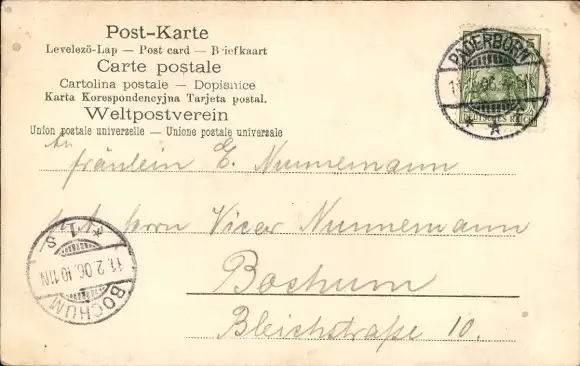 Post-Karte
Levelezö-Lap — Post card — Briefkaart
Carte postale
Cartolina postale — Dopisnice
Karta Korespondencyjna Tarjeta postal.
Weltpostverein
Union postale universelle — Unione postale universale
PADERBORN
DEUTSCHES REICH
An
Fräulein E. Nunnemann
Herrn Vicar Nunnemann
Bochum
Bleichstraße 10.
BOCHUM
11.2.06.10-11N
* 1 S